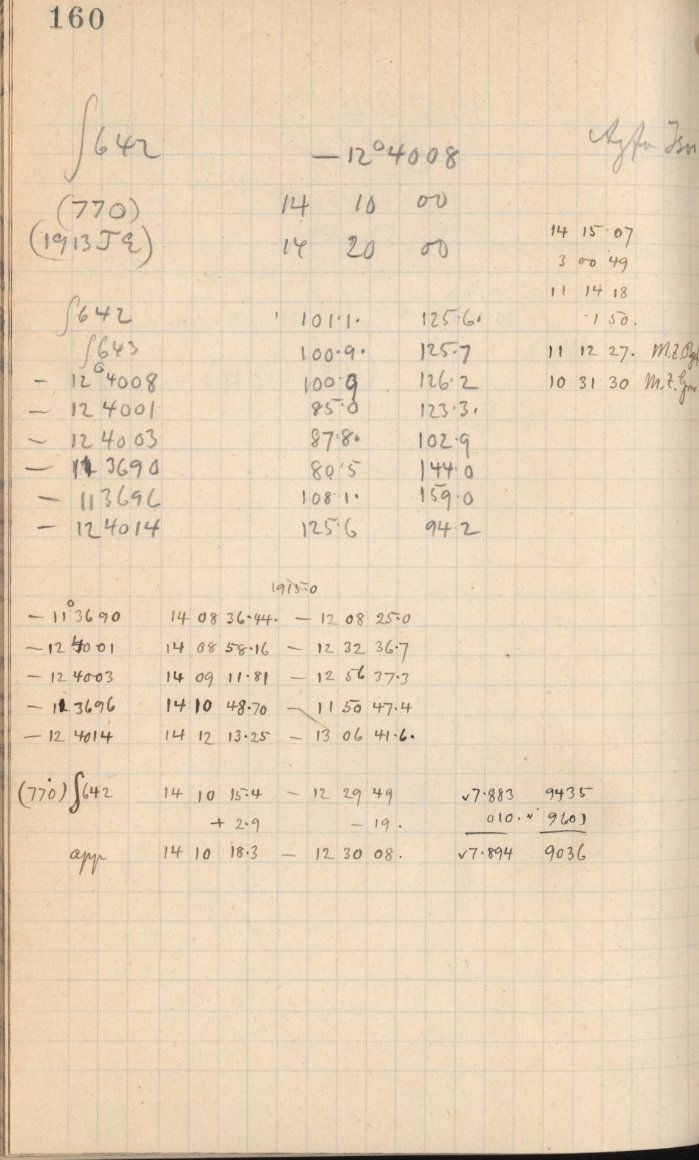 160
∫642 — 12°4008 Agfa
(770) 14 10 00
(1913 TE) 14 20 00
14 15 07
3 00 49
11 14 18
∫642 101.1. 125.6. 1 50.
∫643 100.9. 125.7 11 12 27. M.Z.
— 12°4008 100.9 126.2 10 31 30 M.Z.
— 12 4001 85.0 123.3.
— 12 4003 87.8. 102.9
— 11 3690 80.5 144.0
— 11 3696 108.1. 159.0
— 12 4014 125.6 94.2
1915.0
— 11°3690 14 08 36.44. — 12 08 25.0
— 12 4001 14 08 58.16 — 12 32 36.7
— 12 4003 14 09 11.81 — 12 56 37.3
— 11 3696 14 10 48.70 — 11 50 47.4
— 12 4014 14 12 13.25 — 13 06 41.6.
(770) ∫642 14 10 15.4 — 12 29 49 √7.883 9435
+ 2.9 — 19. 010. √ 9601
app 14 10 18.3 — 12 30 08. √7.894 9036